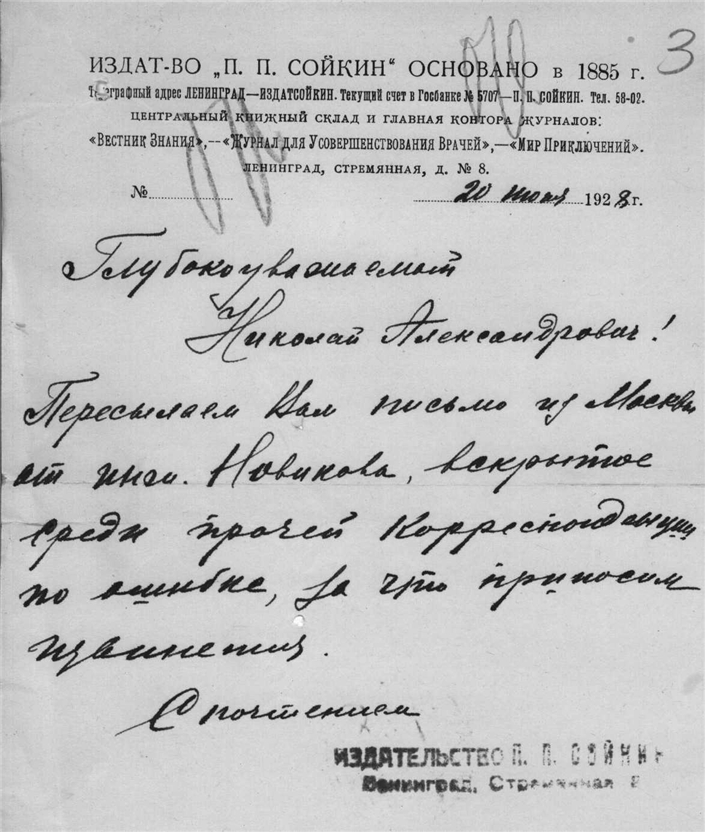 3
ИЗДАТ-ВО „П. П. СОЙКИН“ ОСНОВАНО в 1885 г.
Телеграфный адрес ЛЕНИНГРАД—ИЗДАТСОЙКИН. Текущий счет в Госбанке № 5707—П. П. СОЙКИН. Тел. 58-02.
ЦЕНТРАЛЬНЫЙ КНИЖНЫЙ СКЛАД И ГЛАВНАЯ КОНТОРА ЖУРНАЛОВ:
«ВЕСТНИК ЗНАНИЯ»,—«ЖУРНАЛ ДЛЯ УСОВЕРШЕНСТВОВАНИЯ ВРАЧЕЙ»,—«МИР ПРИКЛЮЧЕНИЙ».
ЛЕНИНГРАД, СТРЕМЯННАЯ, д. № 8.
№ 20 1928 г.
Глубокоуважаемый
Николай Александрович!
Пересылаем Вам письмо из Москвы
от инж. Новикова, вскрытое
среди прочей корреспонденции
по ошибке, за что приносим
извинения.
С почтением
ИЗДАТЕЛЬСТВО П. П. СОЙКИН
Ленинград, Стремянная 8